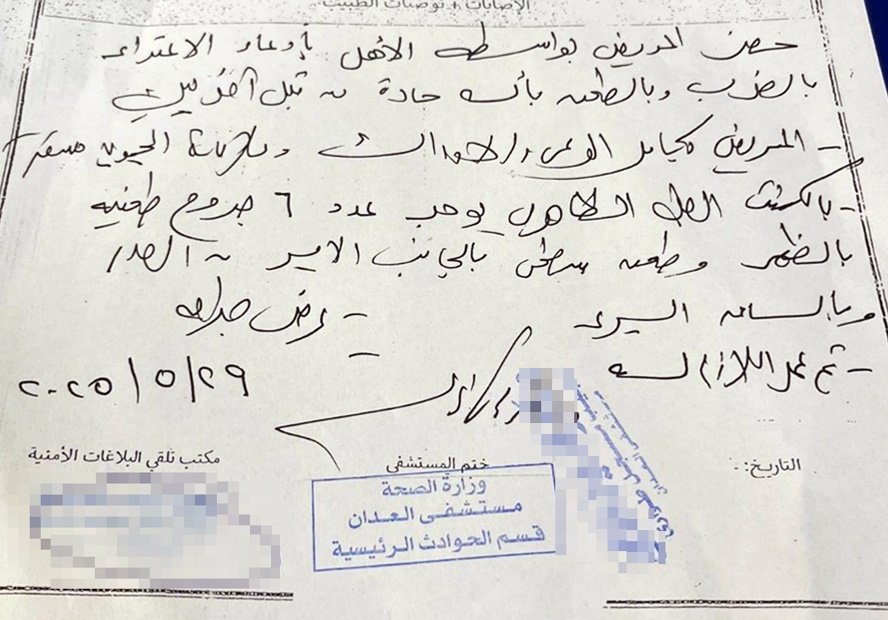 الإصابات + توصيات الطبيب
حضر المريض بواسطة الأهل بإدعاء الاعتداء
بالضرب وبالطعن بآلة حادة من قبل آخرين
- المريض بكامل الوعي والادراك وعلاماته الحيوية مستقرة
- بالكشف الطبي الظاهري يوجد عدد ٦ جروح طعنية
بالظهر وطعنه سطحي بالجانب الايسر من الصدر
وبالساق اليسرى
- عرض جراحة
- تم عمل اللازم له
٢٠٢٥/٥/٢٩
التاريخ:
ختم المستشفى
مكتب تلقي البلاغات الأمنية
وزارة الصحة
مستشفى العدان
قسم الحوادث الرئيسية